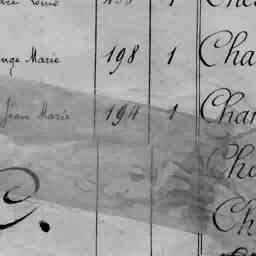 nge Marie 198 1 Cha
Jean Marie 194 1 Char
Cha
Ch
C.